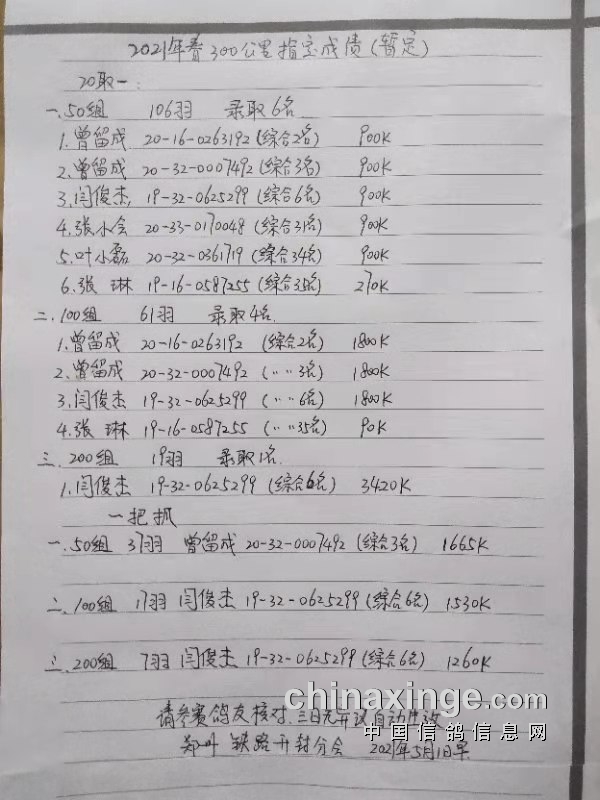 2021年春300公里指定成绩(暂定)
20取一:
一.50组 106羽 录取6名
1.曾留成 20-16-0263192(综合2名) 900K
2.曾留成 20-32-0007492(综合3名) 900K
3.闫俊杰 19-32-0625299(综合6名) 900K
4.张小会 20-33-0170048(综合31名) 900K
5.叶小磊 20-32-0361719(综合34名) 900K
6.张 琳 19-16-0587255(综合35名) 270K
二.100组 61羽 录取4名
1.曾留成 20-16-0263192 (综合2名) 1800K
2.曾留成 20-32-0007492 (〃〃3名) 1800K
3.闫俊杰 19-32-0625299 (〃〃6名) 1800K
4.张 琳 19-16-0587255 (〃〃35名) 90K
三.200组 19羽 录取1名
1.闫俊杰 19-32-0625299(综合6名) 3420K
一把抓
一.50组 37羽 曾留成 20-32-0007492(综合3名) 1665K
二.100组 17羽 闫俊杰 19-32-0625299(综合6名) 1530K
三.200组 7羽 闫俊杰 19-32-0625299(综合6名) 1260K
请参赛鸽友核对.三日无异议自动生效
郑州铁路开封分会 2021年5月1日早
chinaxinge.com
中国信鸽信息网